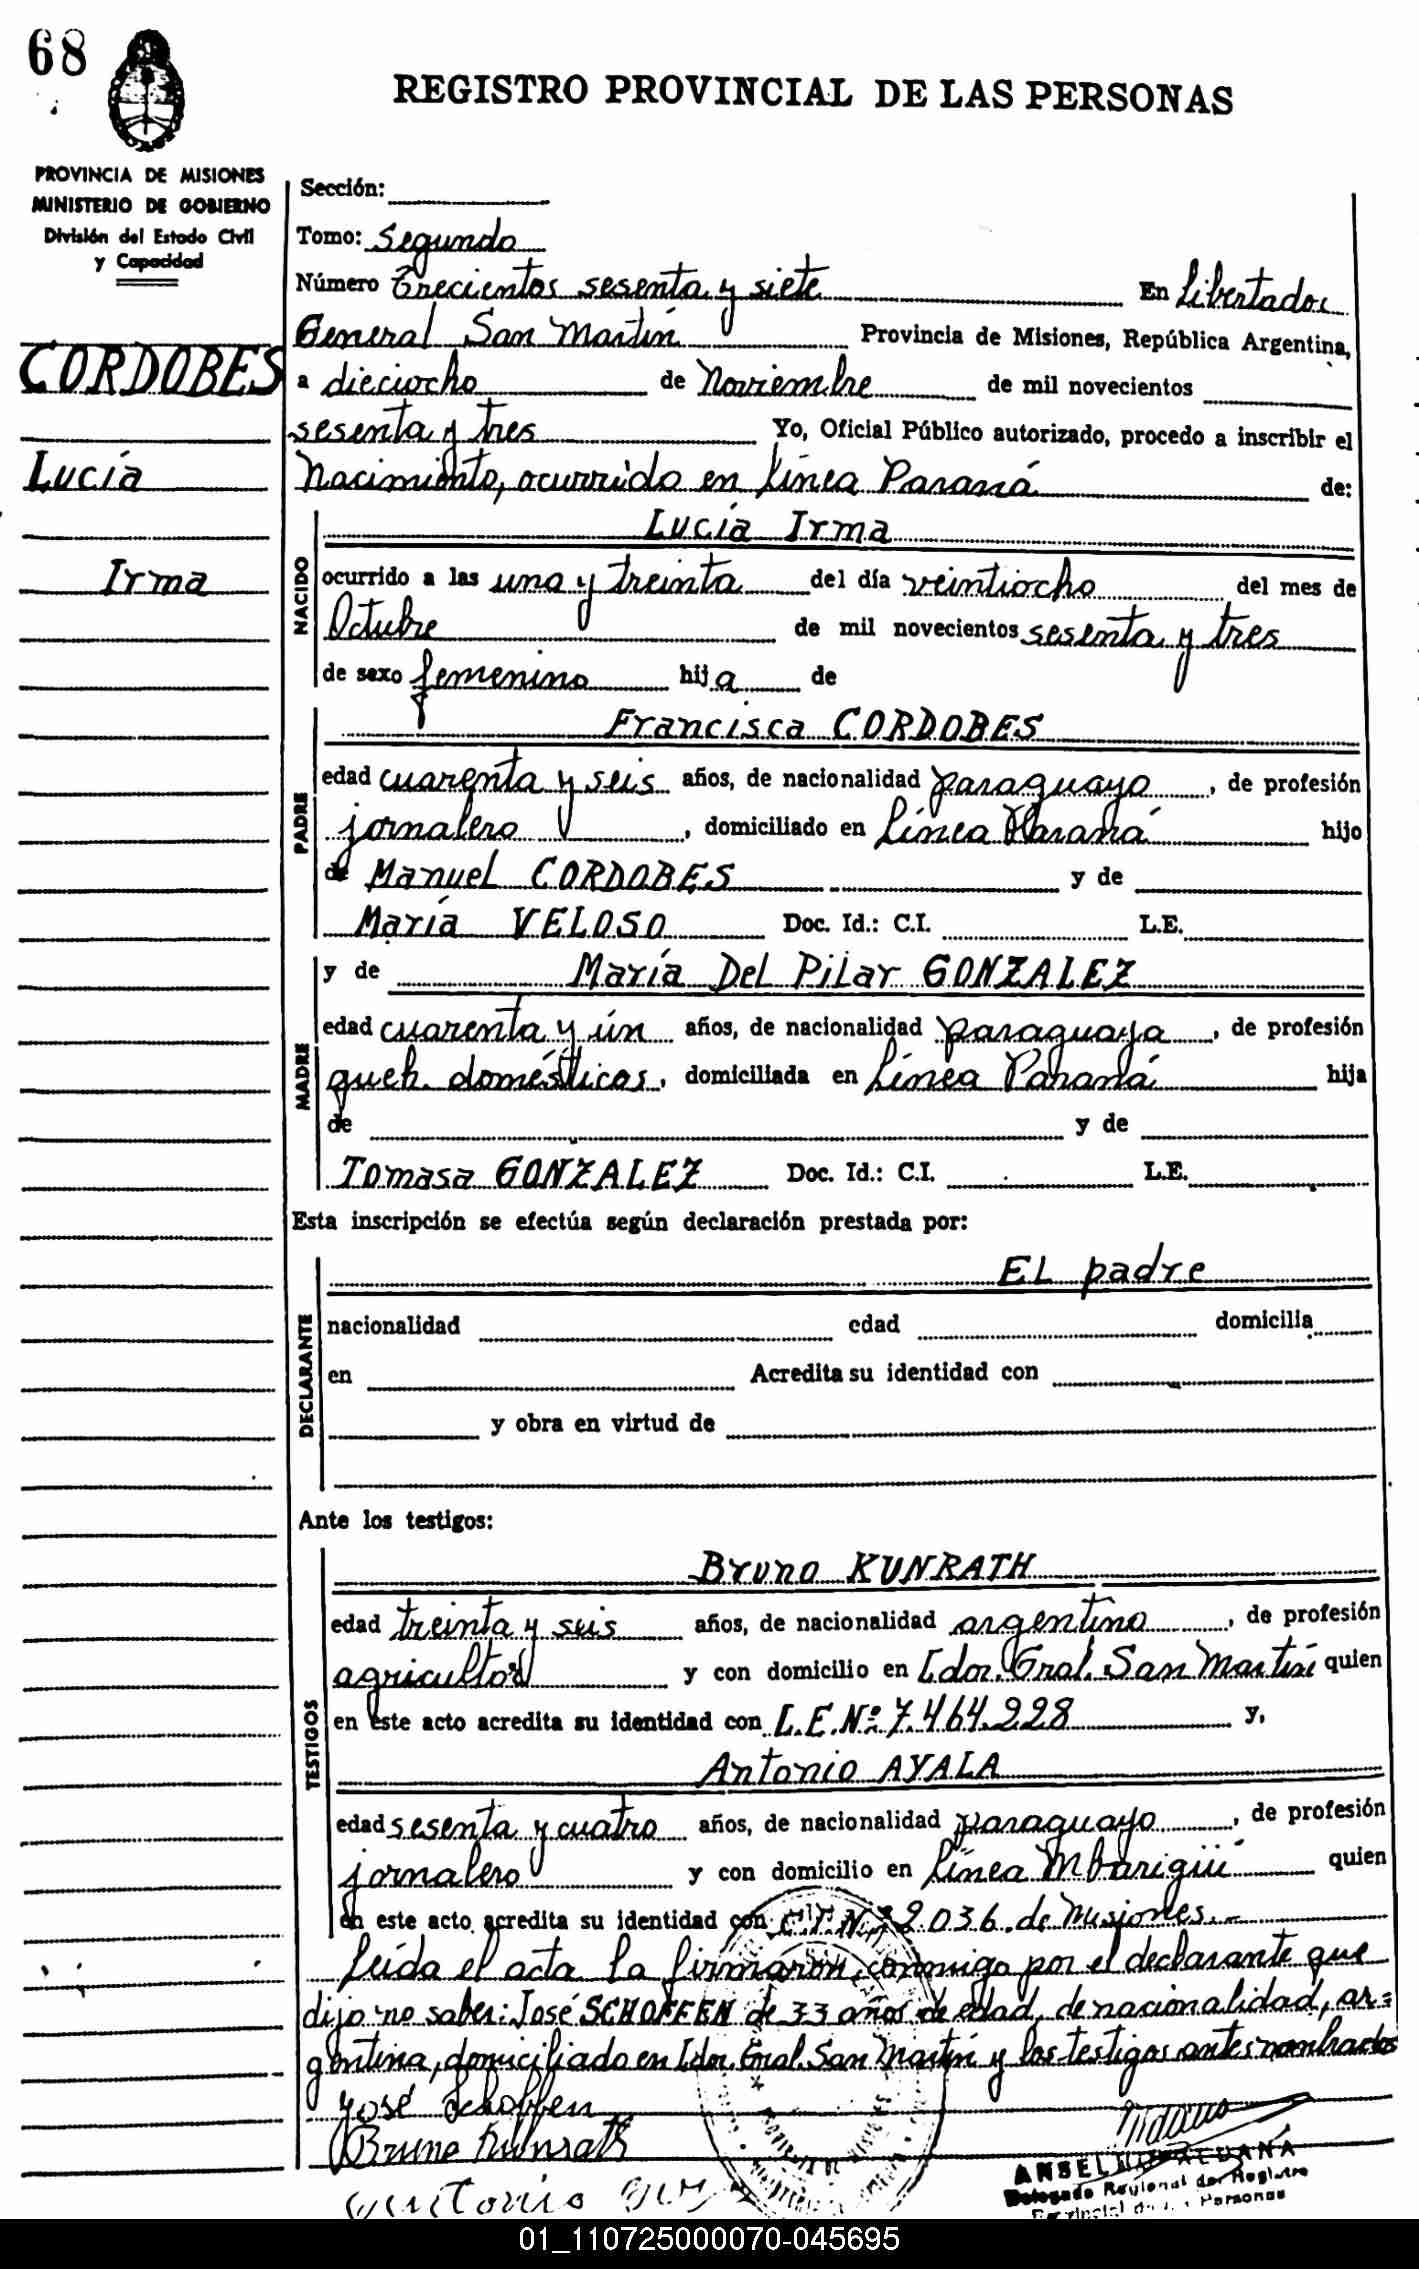 68
REGISTRO PROVINCIAL DE LAS PERSONAS
PROVINCIA DE MISIONES
MINISTERIO DE GOBIERNO
División del Estado Civil
y Capacidad
CORDOBES
Lucía
Irma
Sección:
Tomo: Segundo
Número Trecientos sesenta y siete En Libertador
General San Martín Provincia de Misiones, República Argentina,
a dieciocho de Noviembre de mil novecientos
sesenta y tres Yo, Oficial Público autorizado, procedo a inscribir el
Nacimiento, ocurrido en Línea Paraná de:
NACIDO
Lucía Irma
ocurrido a las una y treinta del día veintiocho del mes de
Octubre de mil novecientos sesenta y tres
de sexo femenino hija de
PADRE
Francisca CORDOBES
edad cuarenta y seis años, de nacionalidad paraguayo, de profesión
jornalero, domiciliado en Línea Paraná hijo
de Manuel CORDOBES y de
María VELOSO Doc. Id.: C.I. L.E.
MADRE
y de María Del Pilar GONZALEZ
edad cuarenta y ún años, de nacionalidad paraguaya, de profesión
queh. domésticos, domiciliada en Línea Paraná hija
de y de
Tomasa GONZALEZ Doc. Id.: C.I. L.E.
Esta inscripción se efectúa según declaración prestada por:
DECLARANTE
EL padre
nacionalidad edad domicilia
en Acredita su identidad con
y obra en virtud de
Ante los testigos:
TESTIGOS
Bruno KUNRATH
edad treinta y seis años, de nacionalidad argentino, de profesión
agricultor y con domicilio en Ldor. Gral. San Martín quien
en este acto acredita su identidad con L.E.Nº 7.464.228 y,
Antonio AYALA
edad sesenta y cuatro años, de nacionalidad paraguayo, de profesión
jornalero y con domicilio en Línea Mbarigüí quien
en este acto acredita su identidad con C.I.Nº 22036 de Misiones.-
Leída el acta la firmaron, conmigo por el declarante que
dijo no saber: José SCHOFFEN de 33 años de edad, de nacionalidad, ar=
gentina, domiciliado en Ldor. Gral. San Martín y los testigos antes nombrados
José Schoffen
Bruno Kunrath
Antonio
Delegado Regional del Registro
Provincial de las Personas
01_110725000070-045695